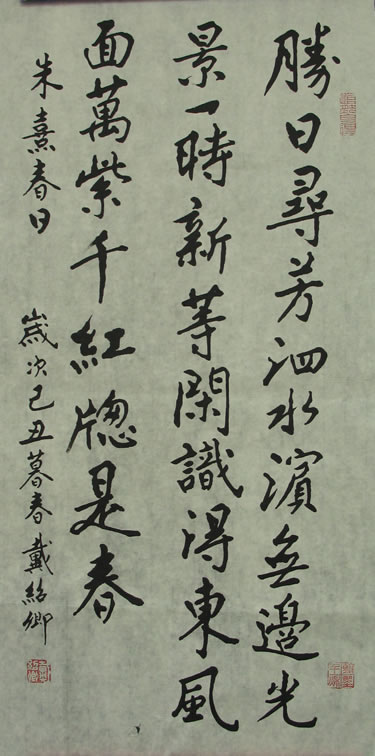 勝日尋芳泗水濱無邊光
景一時新等閑識得東風
面萬紫千紅牕是春
朱熹春日
歲次己丑暮春戴紹卿